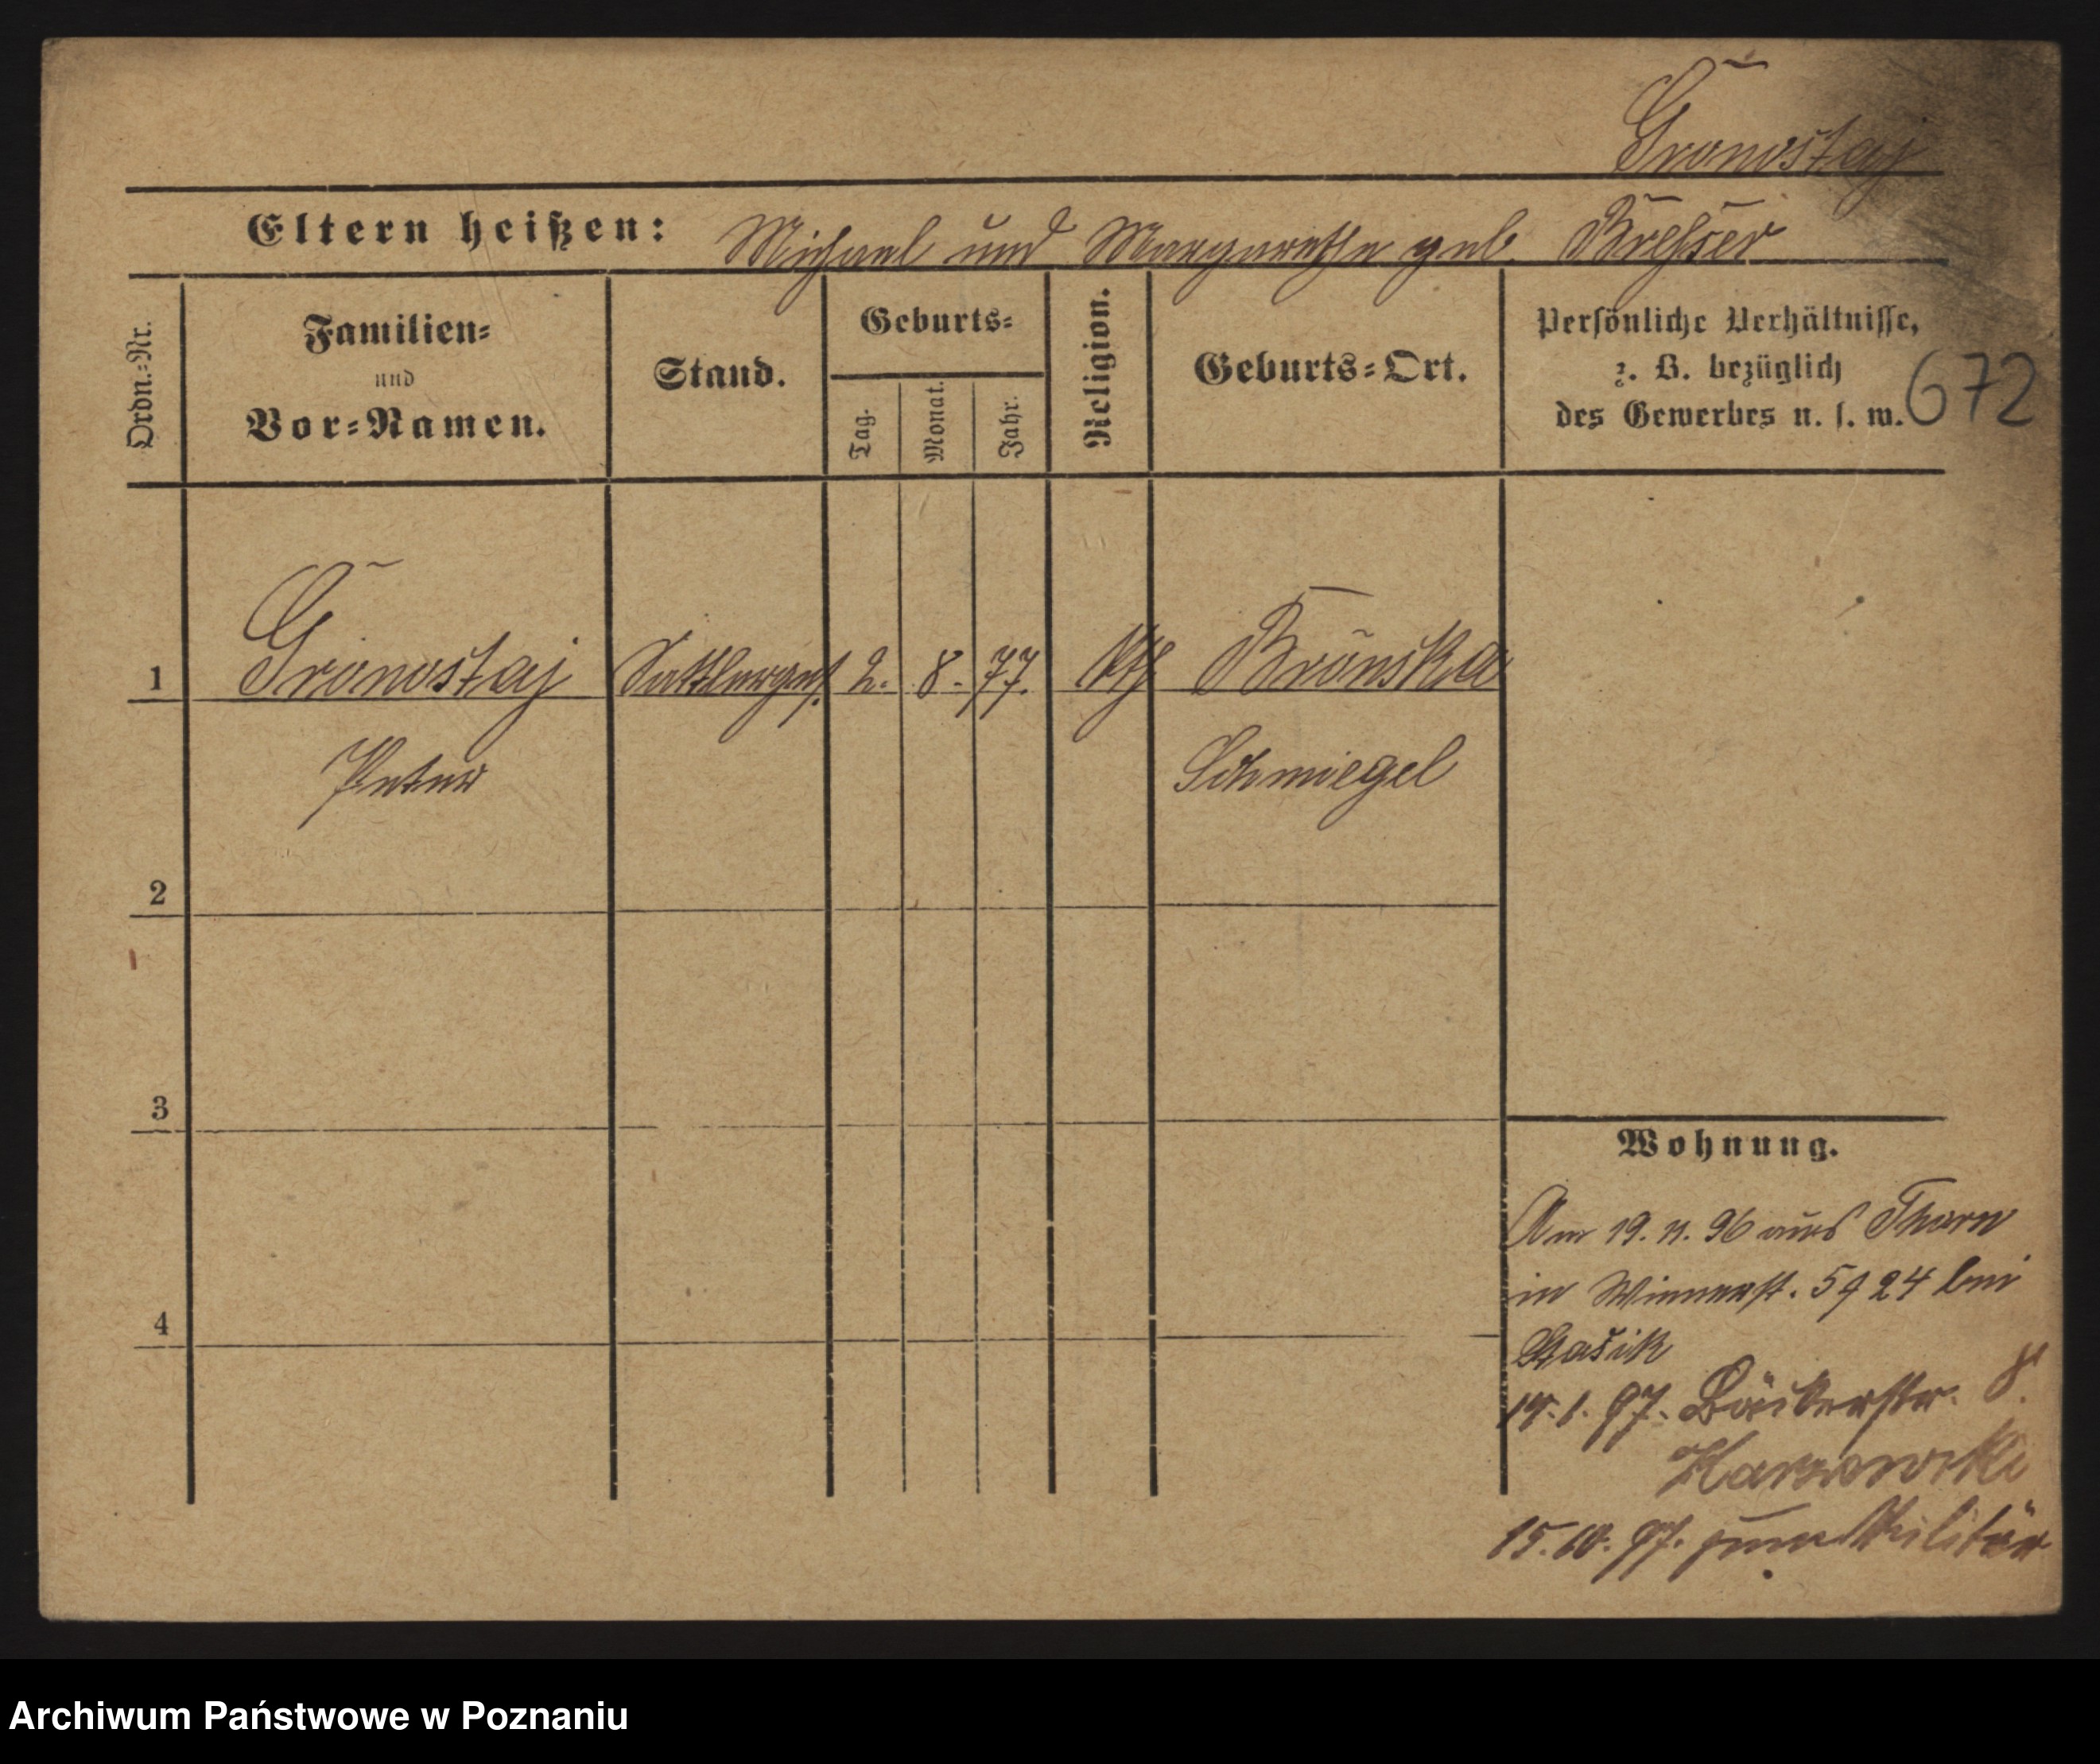 Gronostaj
Eltern heißen: Michael und Margarethe geb. Breßer
Ordn.=Nr.
Familien=
und
Vor=Namen.
Stand.
Geburts=
Tag.
Monat.
Jahr.
Religion.
Geburts=Ort.
Persönliche Verhältnisse,
z. B. bezüglich
des Gewerbes u. s. w.
672
1 Gronostaj Sattlerges. 2. 8. 77. kth Bronska
Peter Schmiegel
2
3
4
Wohnung.
Am 19. 11. 96 aus Thorn
in Wienerst. 5 24 bei
Stasik
1. 97. Bäckerstr. 8.
15. 10. 97. zum Militär
Archiwum Państwowe w Poznaniu